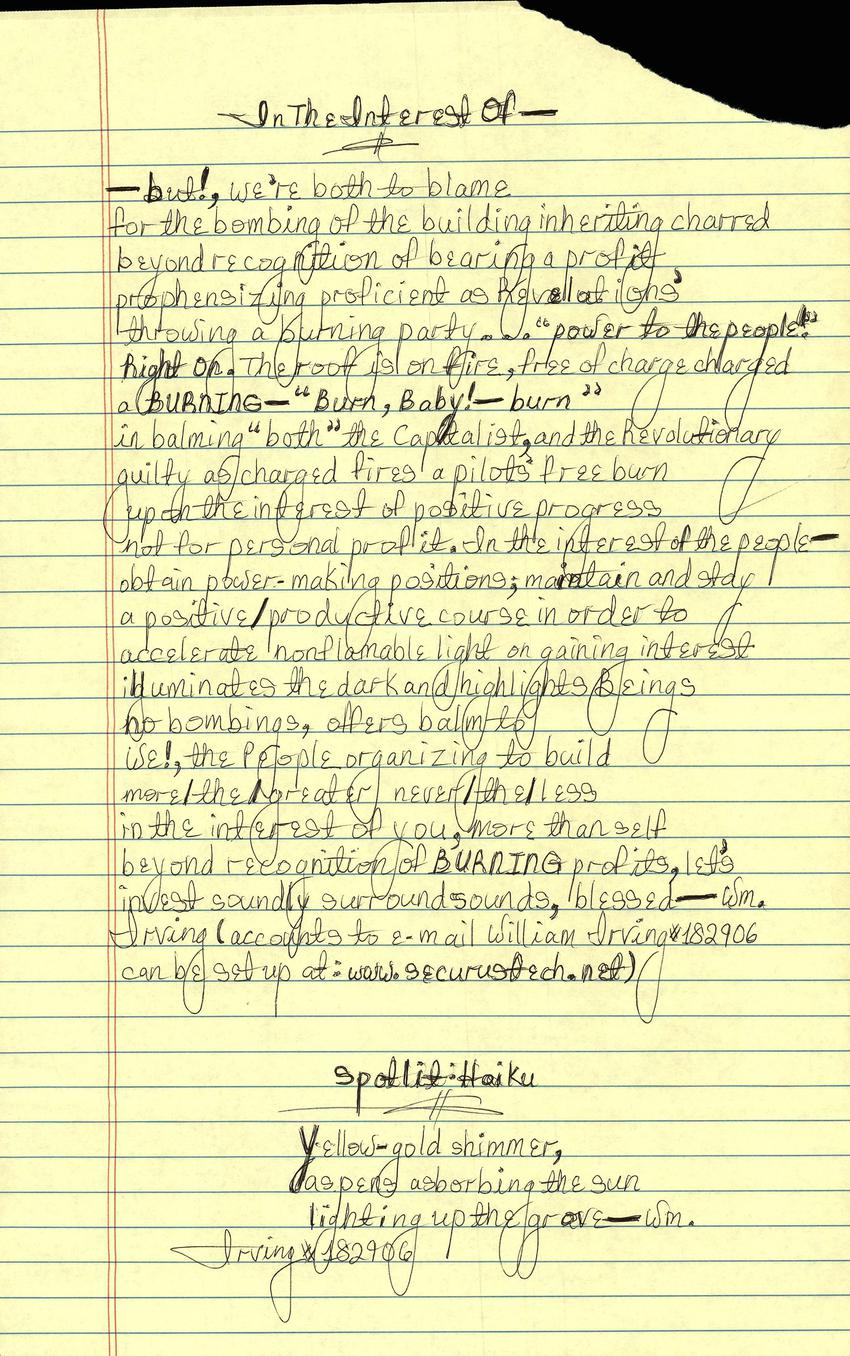 —In The Interest Of—
—but!, we're both to blame
for the bombing of the building inheriting charred
beyond recognition of bearing a profit
prophensizing proficient as Revelations'
throwing a burning party... "power to the people!"
Right On. The roof is on fire, free of charge charged
a BURNING—"Burn, Baby!—burn"
in balming "both" the Capitalist, and the Revolutionary
guilty as charged fires a pilots' free burn
upon the interest of positive progress
not for personal profit. In the interest of the people—
obtain power-making positions; maintain and stay
a positive/productive course in order to
accelerate nonflamable light on gaining interest
illuminates the dark and highlights Beings
no bombings, offers balm to
We!, the People organizing to build
more/the/greater never/the/less
in the interest of you, more than self
beyond recognition of BURNING profits, let's
invest soundly surround sounds, blessed—Wm.
Irving (accounts to e-mail William Irving #182906
can be set up at: www.securustech.net)
Spotlit: Haiku
Yellow-gold shimmer,
aspens asborbing the sun
lighting up the grove—Wm.
Irving #182906